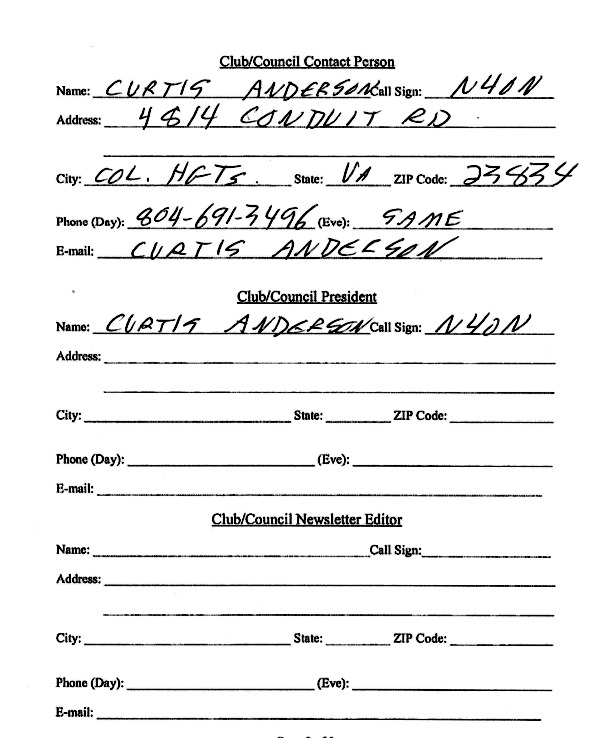 Club/Council Contact Person
Name: CURTIS ANDERSON Call Sign: N4ON
Address: 4814 CONDUIT RD
City: COL. HGTS. State: VA ZIP Code: 23834
Phone (Day): 804-691-3496 (Eve): SAME
E-mail: CURTIS ANDERSON
Club/Council President
Name: CURTIS ANDERSON Call Sign: N4ON
Address:
City: State: ZIP Code:
Phone (Day): (Eve):
E-mail:
Club/Council Newsletter Editor
Name: Call Sign:
Address:
City: State: ZIP Code:
Phone (Day): (Eve):
E-mail: